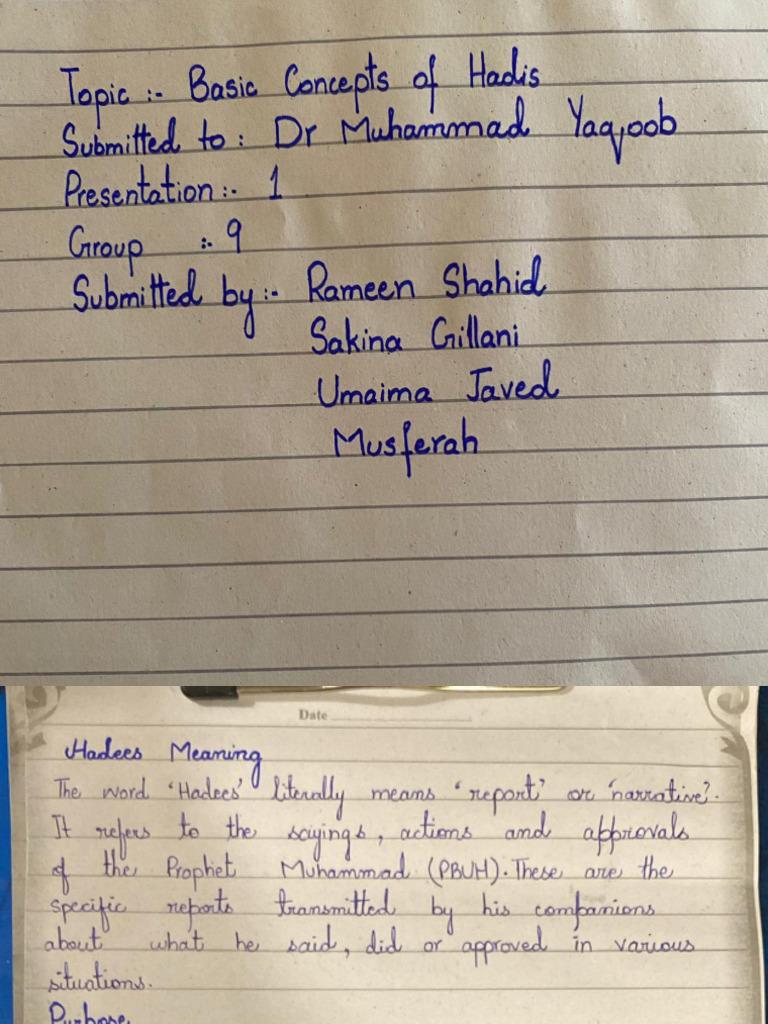 Topic :- Basic Concepts of Hadis
Submitted to : Dr Muhammad Yaqoob
Presentation :- 1
Group :- 9
Submitted by :- Rameen Shahid
Sakina Gillani
Umaima Javed
Musferah
Date
Hadees Meaning
The word 'Hadees' literally means 'report' or 'narrative'.
It refers to the sayings, actions and approvals
of the Prophet Muhammad (PBUH). These are the
specific reports transmitted by his companions
about what he said, did or approved in various
situations.
Purpose